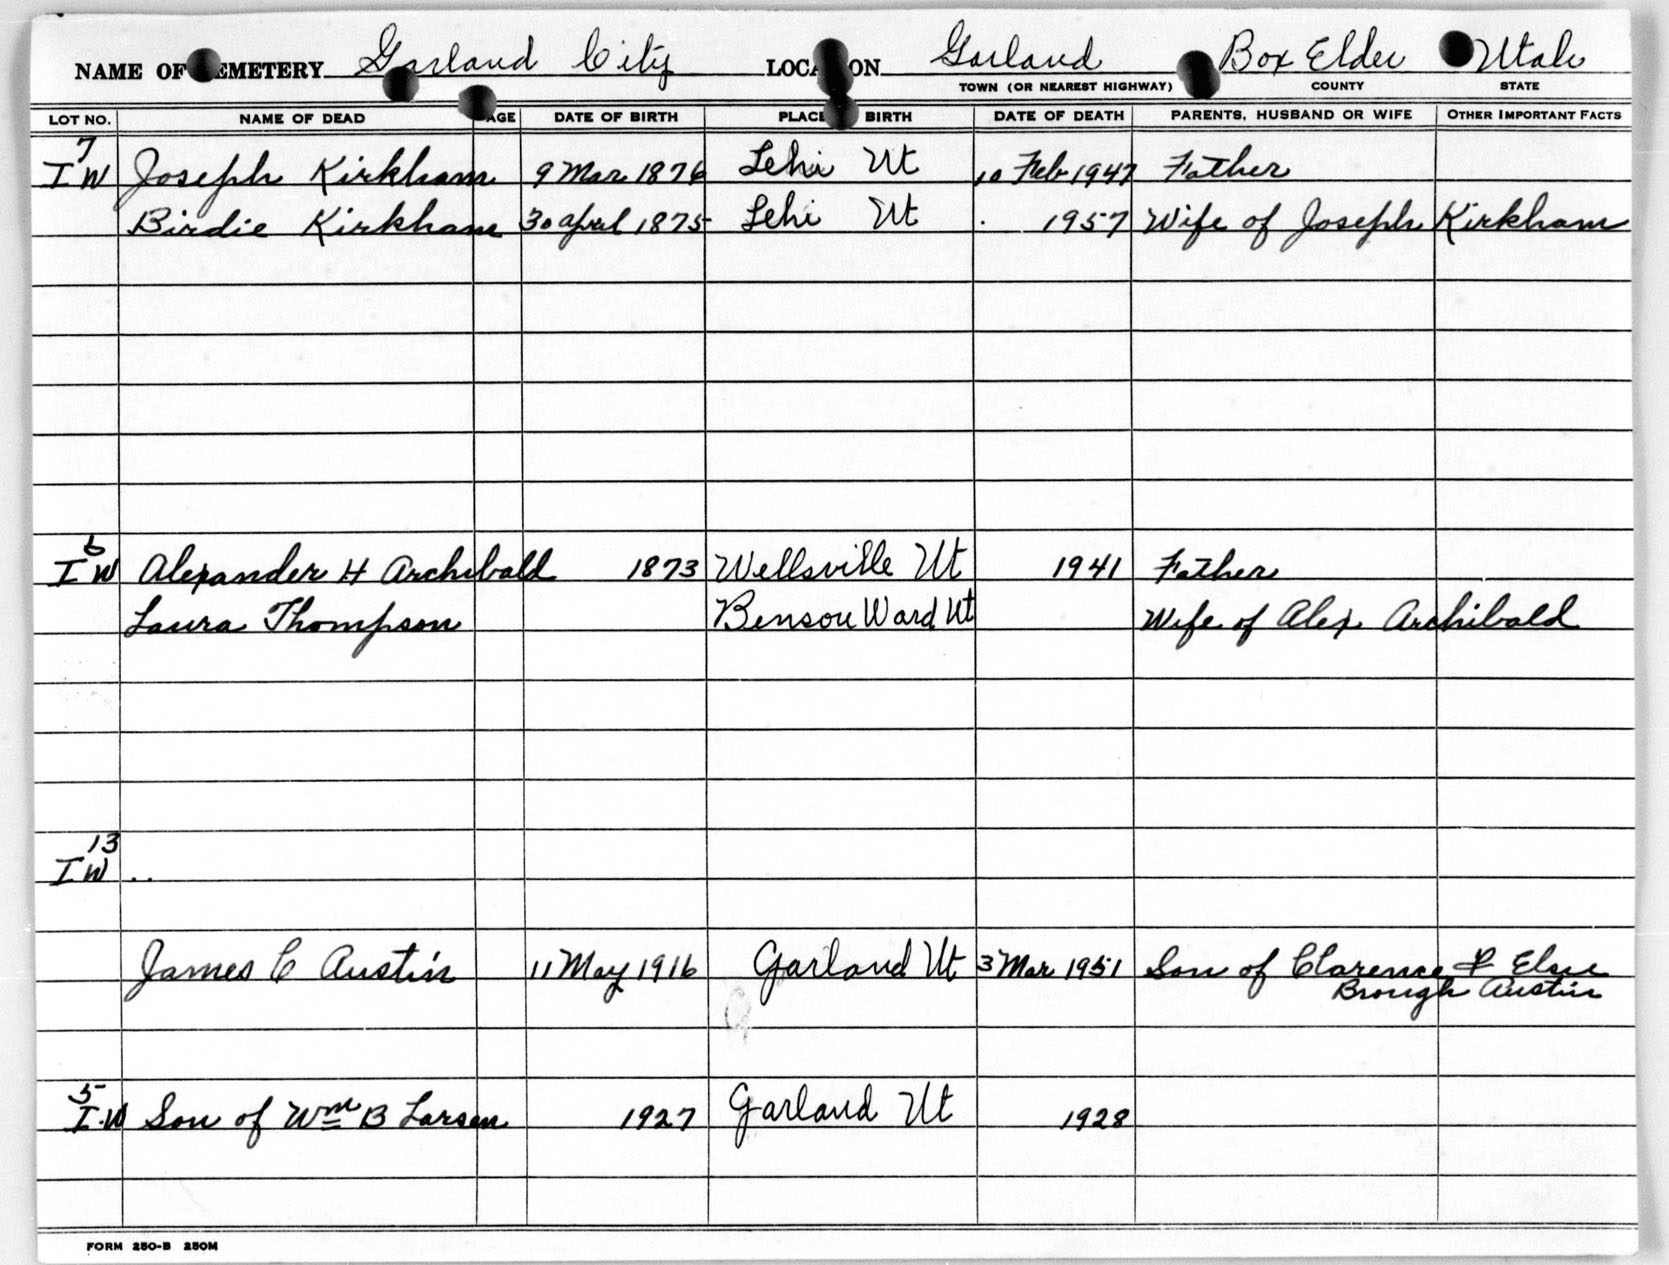 NAME OF CEMETERY Garland City LOCATION Garland Box Elder Utah
TOWN (OR NEAREST HIGHWAY) COUNTY STATE
LOT NO. NAME OF DEAD AGE DATE OF BIRTH PLACE BIRTH DATE OF DEATH PARENTS, HUSBAND OR WIFE OTHER IMPORTANT FACTS
7
I W Joseph Kirkham 9 Mar 1876 Lehi Ut 10 Feb 1947 Father
Birdie Kirkham 30 April 1875 Lehi Ut 1957 Wife of Joseph Kirkham
6
I W Alexander H Archibald 1873 Wellsville Ut 1941 Father
Laura Thompson Benson Ward Ut Wife of Alex Archibald
13
I W ..
James C Austin 11 May 1916 Garland Ut 3 Mar 1951 Son of Clarence & Elsie
Brough Austin
5
I.W Son of Wm B Larsen 1927 Garland Ut 1928
FORM 250-B 250M